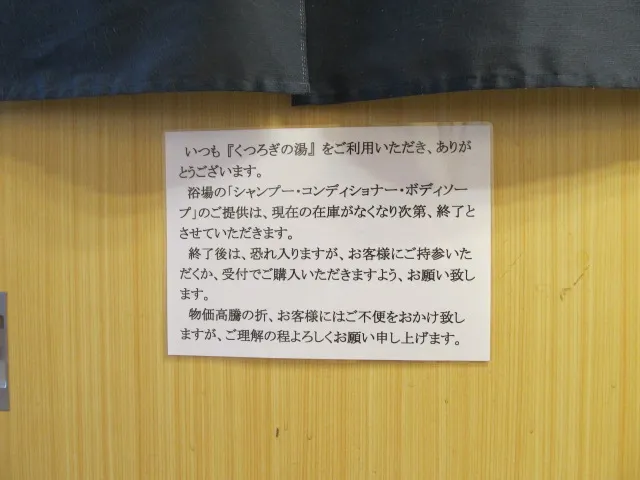 いつも『くつろぎの湯』をご利用いただき、ありが
とうございます。
浴場の「シャンプー・コンディショナー・ボディソー
プ」のご提供は、現在の在庫がなくなり次第、終了と
させていただきます。
終了後は、恐れ入りますが、お客様にご持参いた
だくか、受付でご購入いただきますよう、お願い致し
ます。
物価高騰の折、お客様にはご不便をおかけ致し
ますが、ご理解の程よろしくお願い申し上げます。